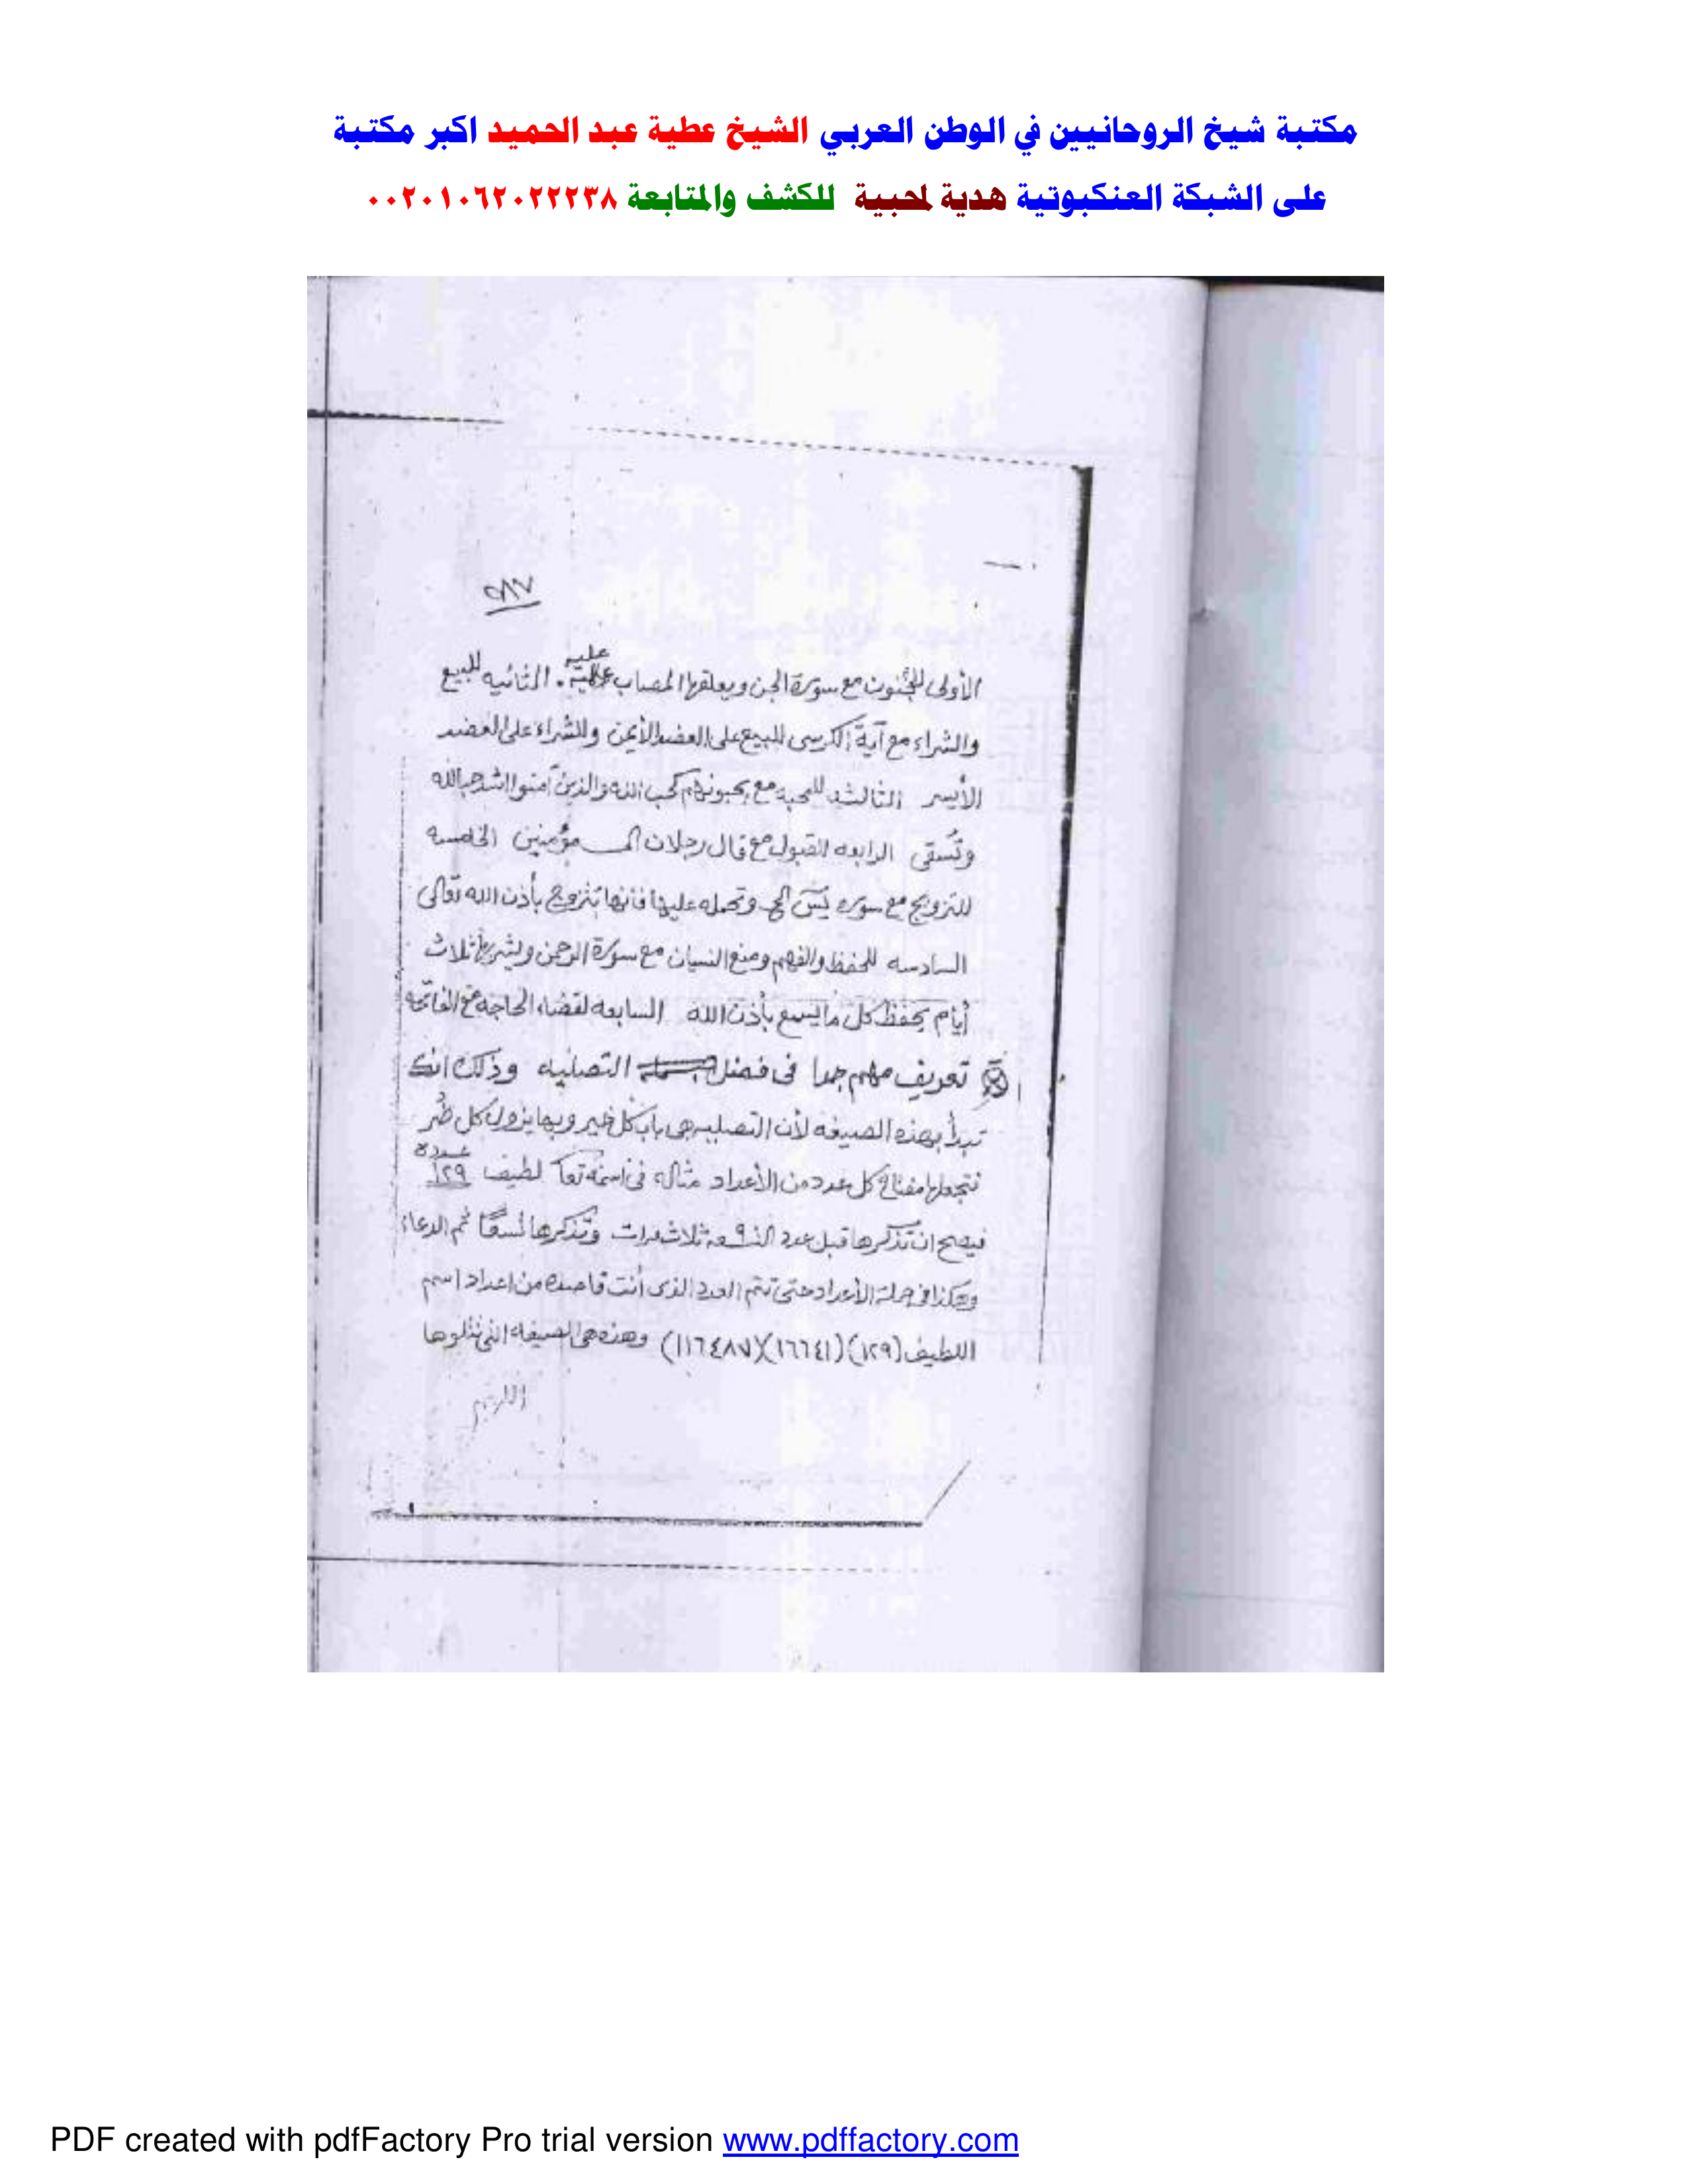 مكتبة شيخ الروحانيين في الوطن العربي الشيخ عطية عبد الحميد اكبر مكتبة
على الشبكة العنكبوتية هدية لمحبية للكشف والمتابعة ٠٠٢٠١٠٦٢٠٢٢٢٣٨
الأولى للمجنون مع سورة الجن ويعلقها المصاب عليه . الثانيه للبيع
والشراء مع آية الكرسى للبيع على العضد الأيمن وللشراء على العضد
الأيسر الثالثه للمحبه مع يحبونهم كحب الله والذين آمنوا اشد حبا لله
وتُسقى الرابعه للقبول مع قال رجلان الى مؤمنين الخامسه
للتزويج مع سوره يس وتحمله عليها فأنها تتزوج بأذن الله تعالى
السادسه للحفظ والفهم ومنع النسيان مع سورة الرحمن ويشربها ثلاث
أيام يحفظ كل ما يسمع بأذن الله السابعه لقضاء الحاجه مع الفاتحه
تعريف مهم جدا فى فضل التصليه وذلك انك
تبدأ بهذه الصيغه لأن التصليه هى باب كل خير وبها يزول كل ضُر
فتجعلها مفتاح كل عدد من الأعداد مثاله فى اسمه تعا لطيف عدده ١٢٩
فيصح ان تذكرها قبل عدد ثلاث مرات وتذكرها نسقًا ثم الدعاء
وهكذا فى جملة الأعداد حتى تتم العدد الذى أنت قاصده من اعداد اسم
اللطيف (١٢٩) (١٦٦٤١) (١١٦٤٨٧) وهذه هى الصيغه التى نتلوها
اللهم
PDF created with pdfFactory Pro trial version www.pdffactory.com